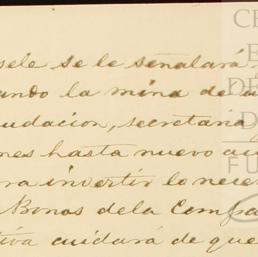 sele se le señalará
ando la mina de
udacion, secretaria
nes hasta nuevo
ra invertir lo nece
Bonos dela Compa
tiva cuidará de que